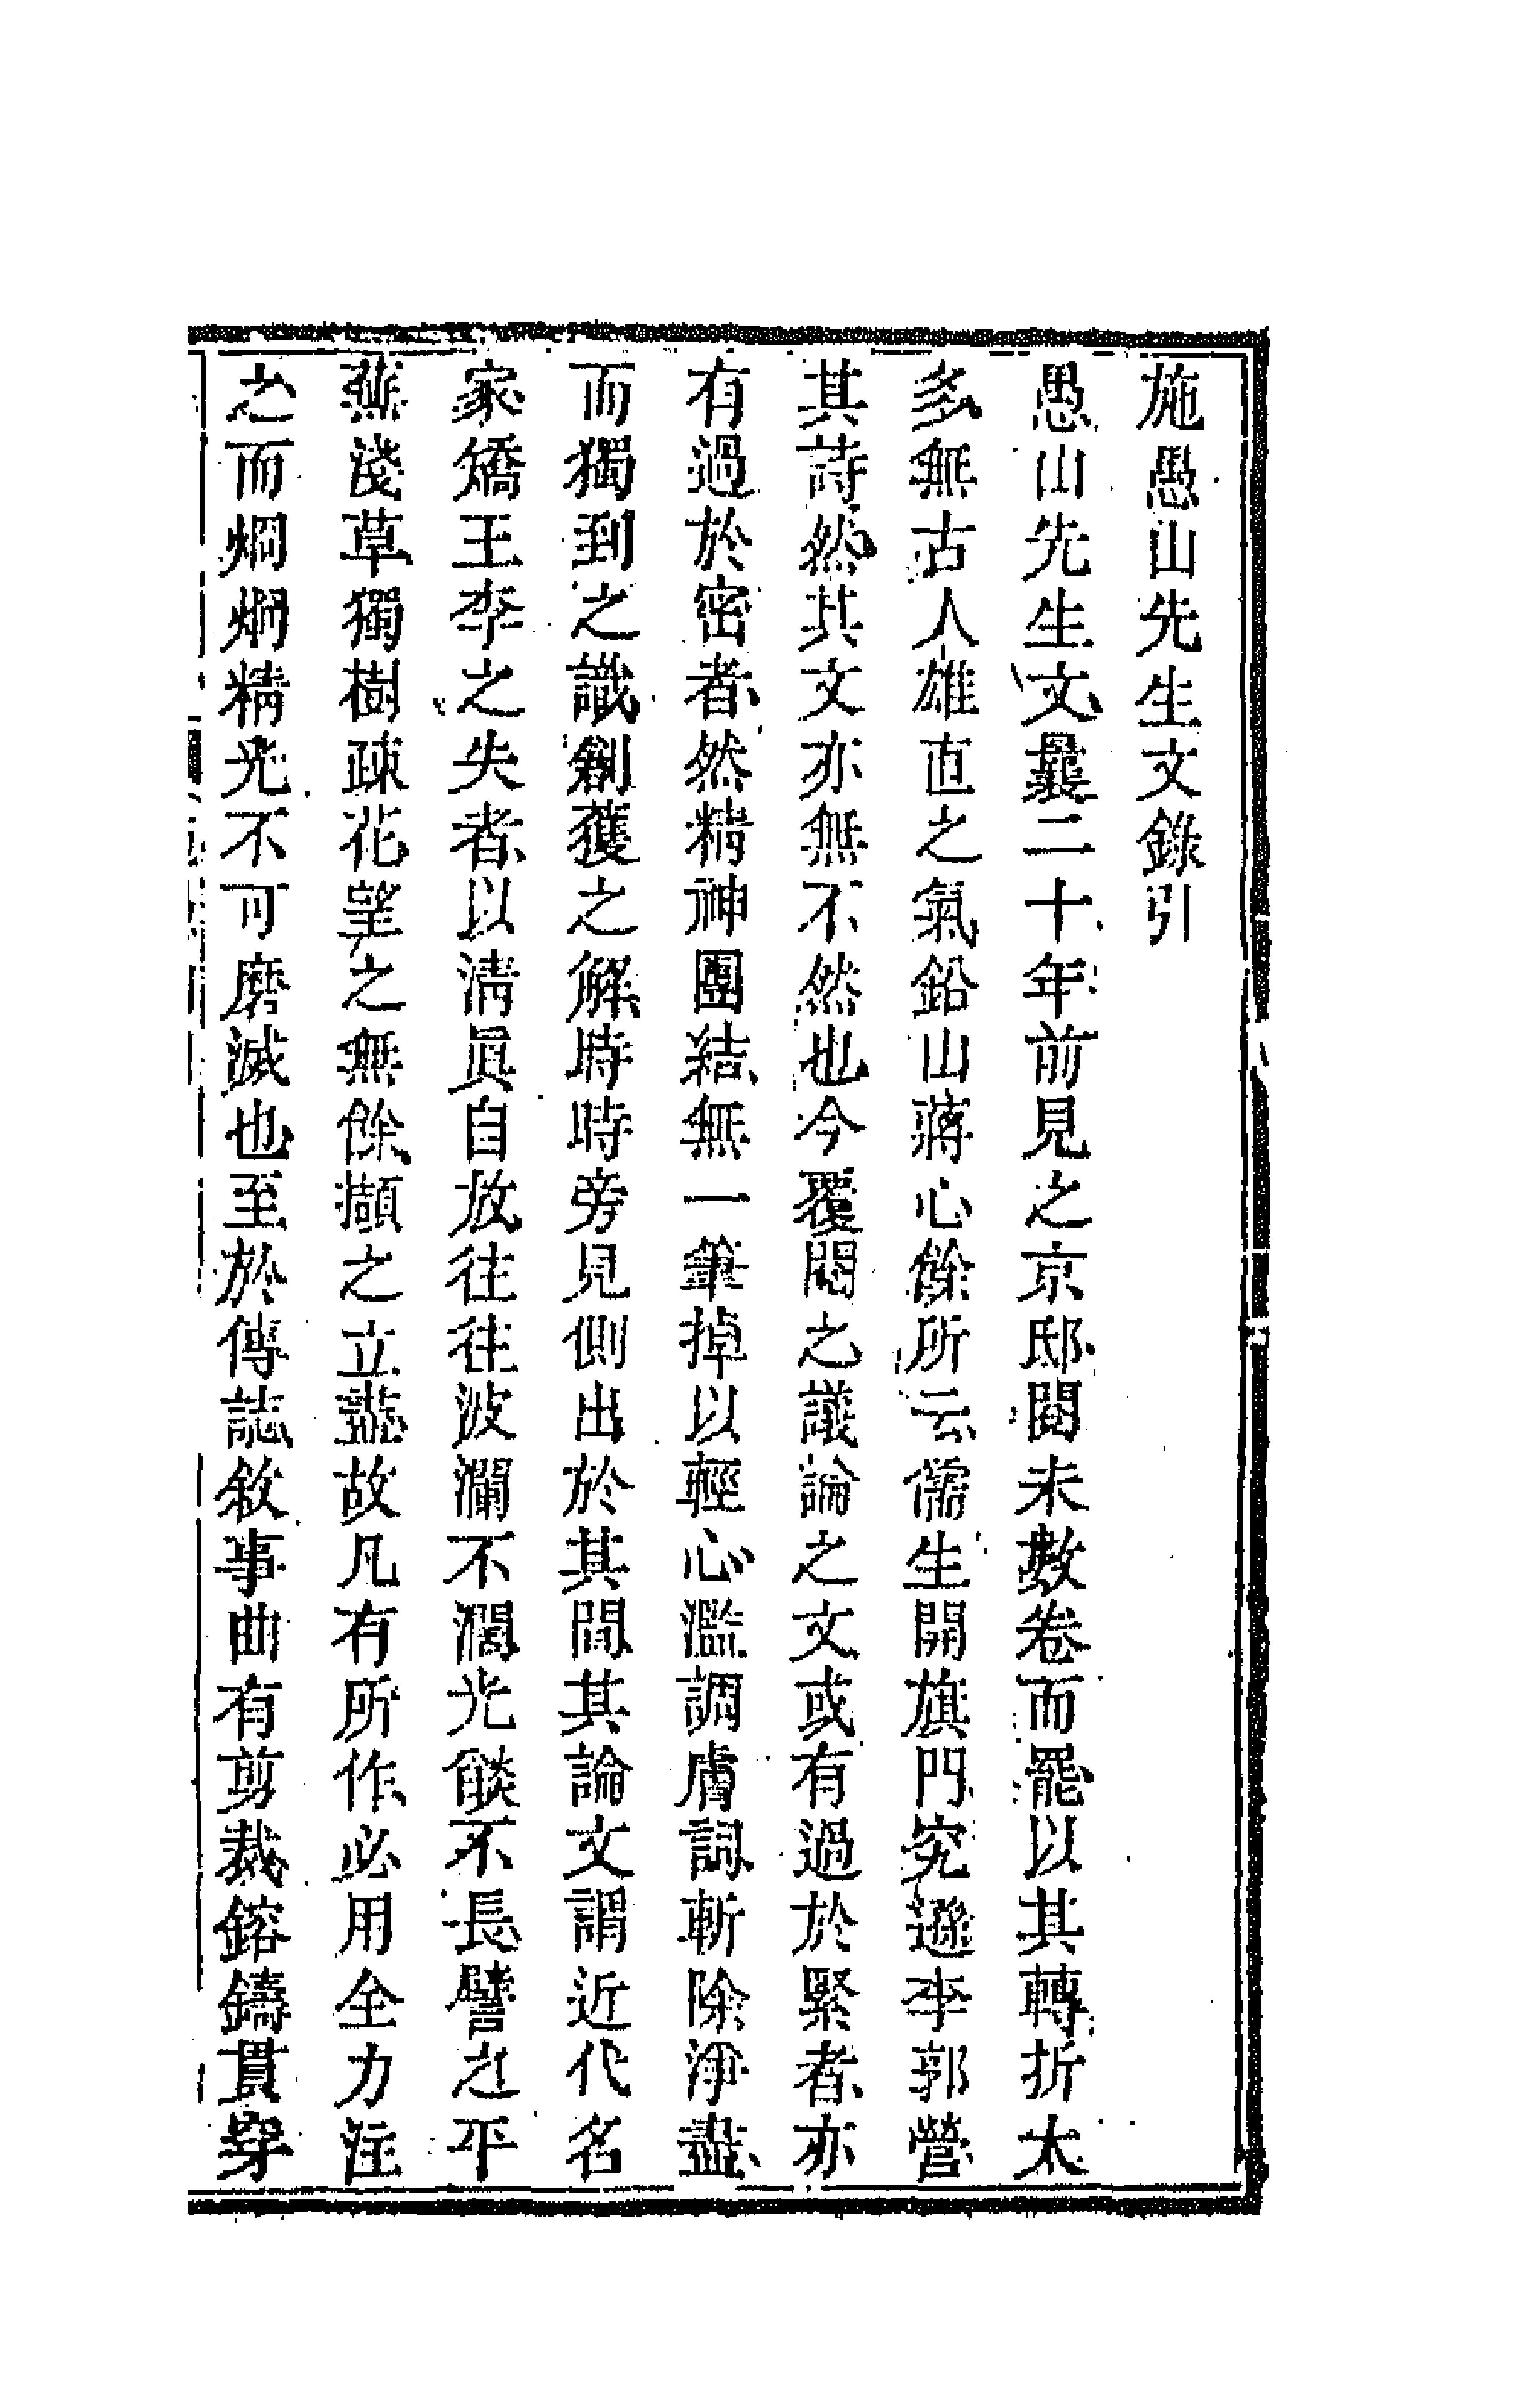 施愚山先生文錄引
愚山先生文曩二十年前見之京邸閱未數卷而罷以其轉折太
多無古人雄直之氣鉛山蔣心餘所云儒生開旗門究遜李郭營
其詩然其文亦無不然也今覆閱之議論之文或有過於緊者亦
有過於密者然精神團結無一筆掉以輕心濫調膚詞斬除淨盡
而獨到之識創獲之解時時旁見側出於其間其論文謂近代名
家矯王李之失者以清眞自放往往波瀾不濶光燄不長譬之平
蕪淺草獨樹疎花望之無餘擷之立盡故凡有所作必用全力注
之而炯炯精光不可磨滅也至於傳誌敘事曲有剪裁鎔鑄貫穿